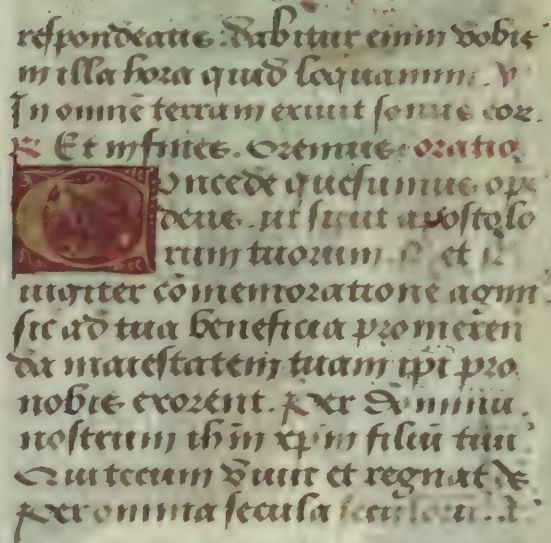 respondeatis. dabitur enim vobis
in illa hora quid loquamini. V
In omnē terram exiuit sonus eor.
R Et in fines. Oremus. oratio
Concede quesumus op̄s
deus. ut sicut apostolo
rum tuorum. N et N
iugiter cōmemoratione agim
sic ad tua beneficia promeren
da maiestatem tuam ip̄i pro
nobis exorent. Per Dominū.
nostrum ih̄m xp̄m filiū tuū
Qui tecum viuit et regnat ds̄
Per omnia secula seculorū.